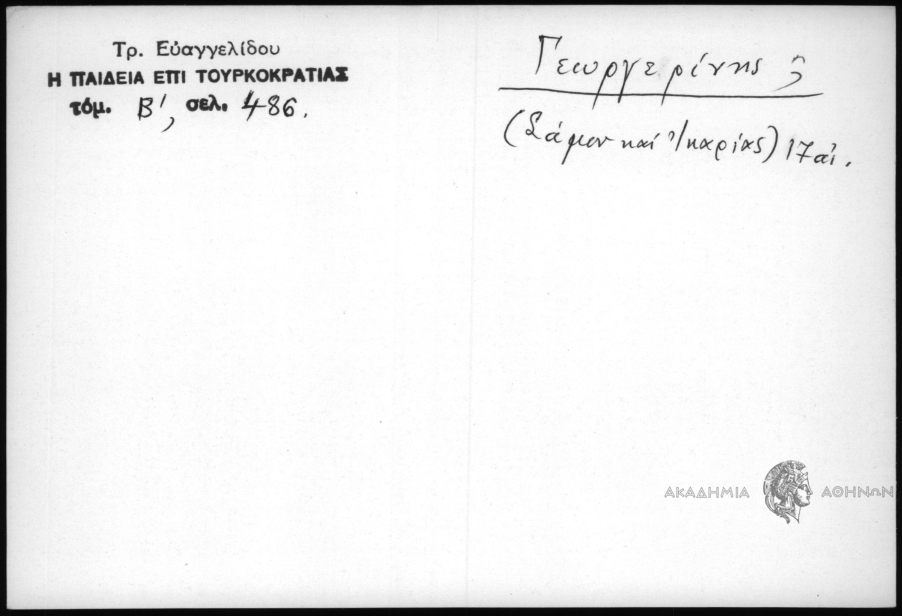 Τρ. Εὐαγγελίδου
Η ΠΑΙΔΕΙΑ ΕΠΙ ΤΟΥΡΚΟΚΡΑΤΙΑΣ
τόμ. Β', σελ. 486.
Γεωργερίνης
(Σάμου καί Ἰκαρίας) 17 αἰ.
ΑΚΑΔΗΜΙΑ ΑΘΗΝΩΝ